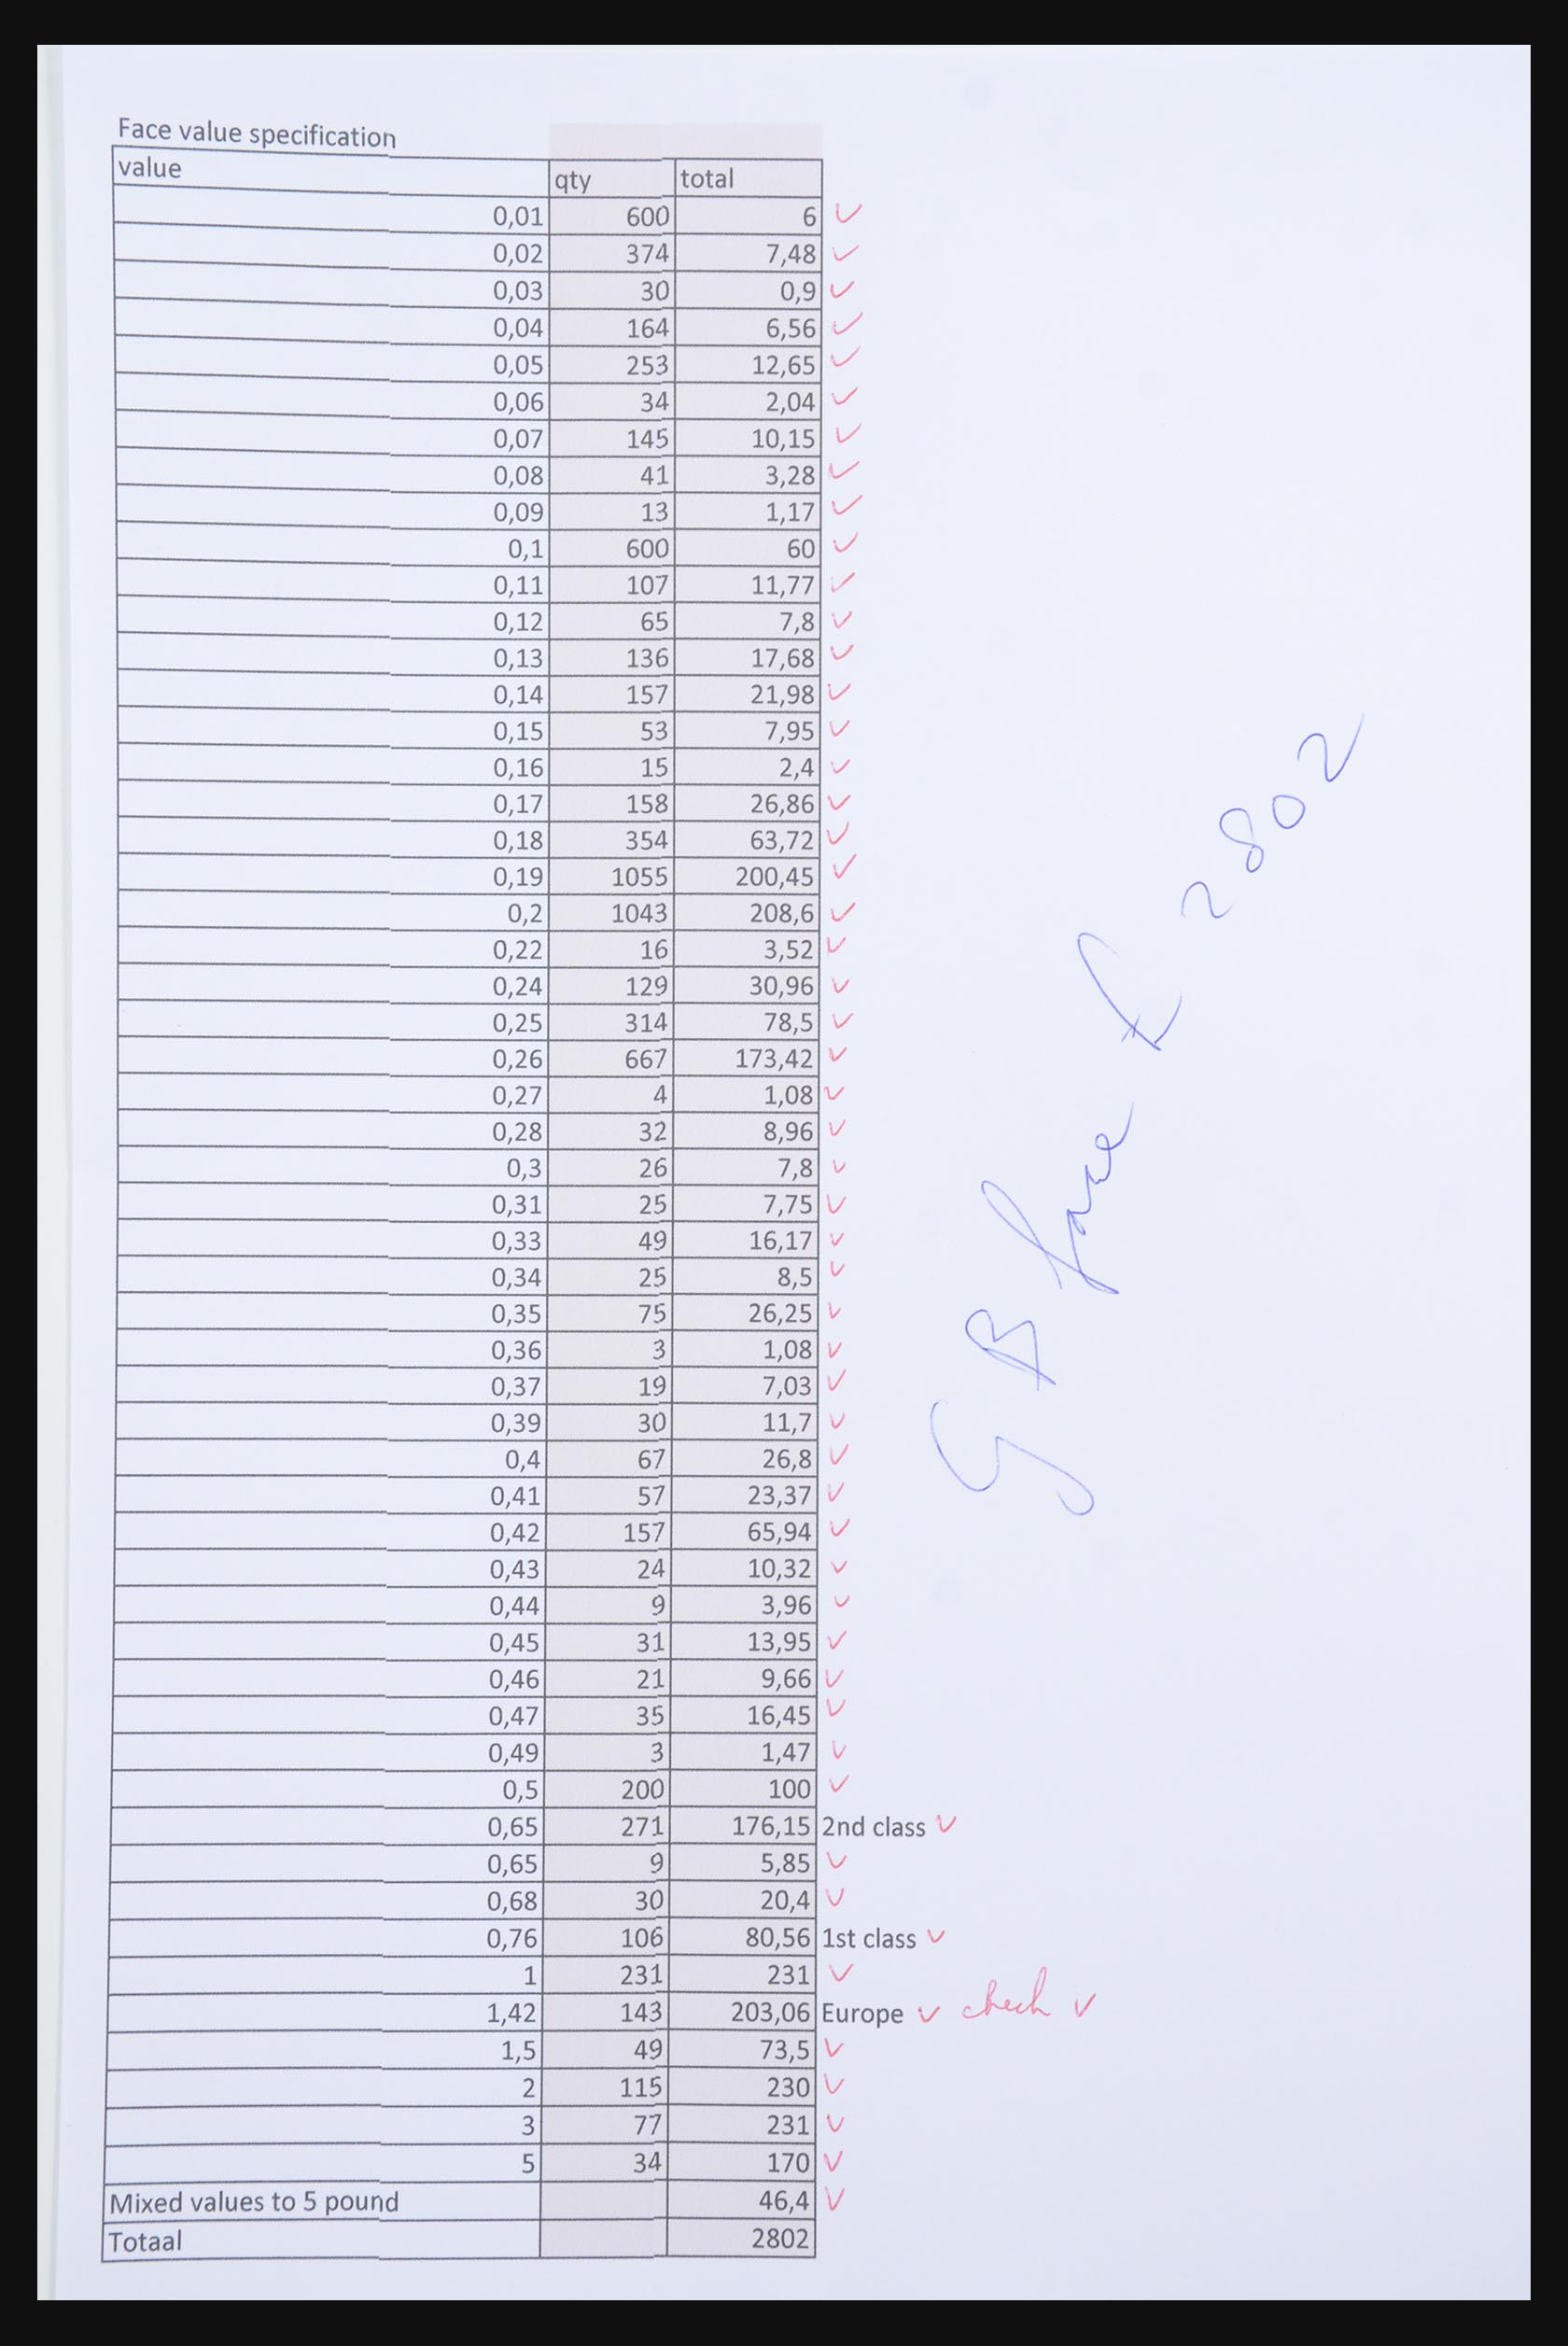 Face value specification
value qty total
0,01 600 6
0,02 374 7,48
0,03 30 0,9
0,04 164 6,56
0,05 253 12,65
0,06 34 2,04
0,07 145 10,15
0,08 41 3,28
0,09 13 1,17
0,1 600 60
0,11 107 11,77
0,12 65 7,8
0,13 136 17,68
0,14 157 21,98
0,15 53 7,95
0,16 15 2,4
0,17 158 26,86
0,18 354 63,72
0,19 1055 200,45
0,2 1043 208,6
0,22 16 3,52
0,24 129 30,96
0,25 314 78,5
0,26 667 173,42
0,27 4 1,08
0,28 32 8,96
0,3 26 7,8
0,31 25 7,75
0,33 49 16,17
0,34 25 8,5
0,35 75 26,25
0,36 3 1,08
0,37 19 7,03
0,39 30 11,7
0,4 67 26,8
0,41 57 23,37
0,42 157 65,94
0,43 24 10,32
0,44 9 3,96
0,45 31 13,95
0,46 21 9,66
0,47 35 16,45
0,49 3 1,47
0,5 200 100
0,65 271 176,15 2nd class
0,65 9 5,85
0,68 30 20,4
0,76 106 80,56 1st class
1 231 231
1,42 143 203,06 Europe check
1,5 49 73,5
2 115 230
3 77 231
5 34 170
Mixed values to 5 pound 46,4
Totaal 2802
GB face £ 2802